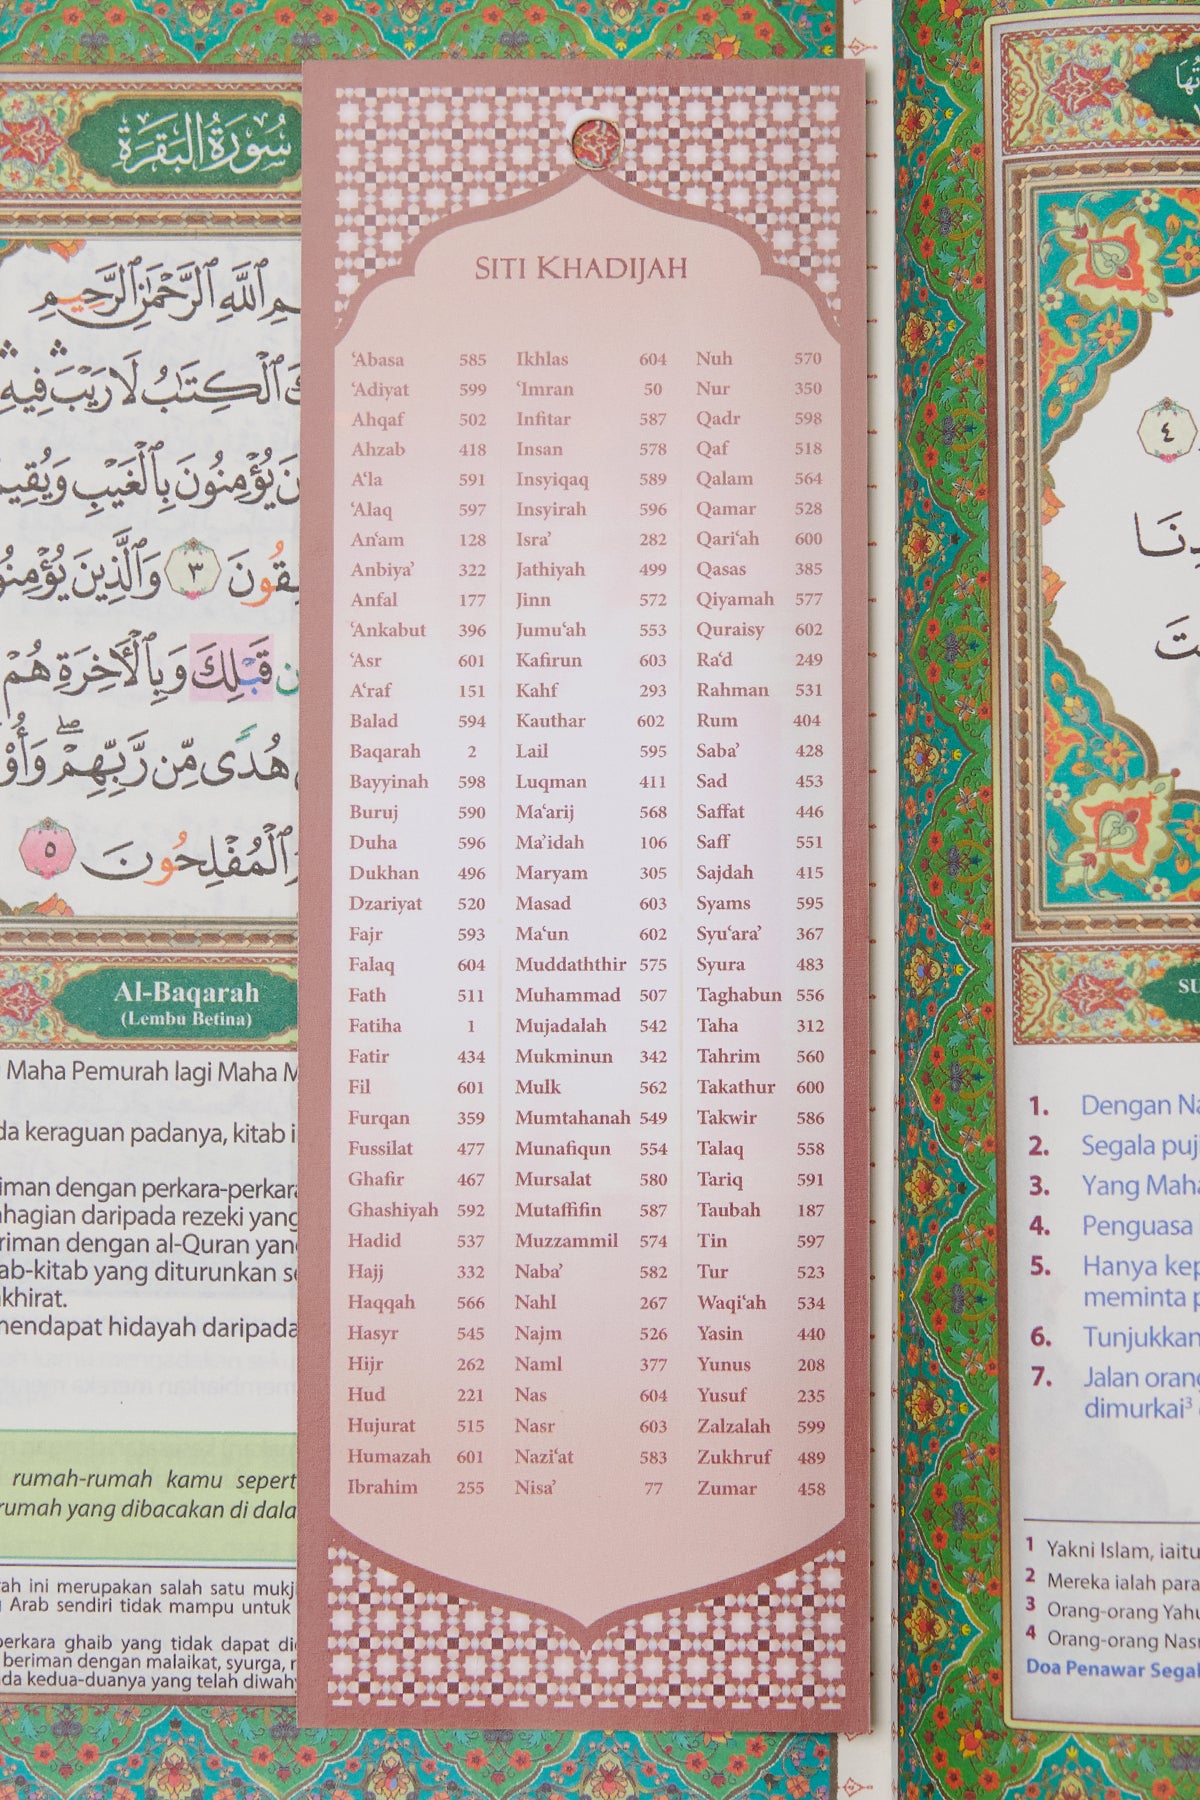 سُورَةُ البَقَرَةِ
ٱللَّهِ ٱلرَّحْمَٰنِ ٱلرَّحِيمِ
ٱلْكِتَٰبُ لَا رَيْبَ فِيهِ
يُؤْمِنُونَ بِٱلْغَيْبِ
٣ وَٱلَّذِينَ
قَبْلِكَ وَبِٱلْأَخِرَةِ هُمْ
هُدًى مِّن رَّبِّهِمْ
ٱلْمُفْلِحُونَ ٥
Al-Baqarah
(Lembu Betina)
Maha Pemurah lagi Maha
keraguan padanya, kitab
dengan perkara-perkara
daripada rezeki yang
dengan al-Quran yang
yang diturunkan
mendapat hidayah daripada
rumah-rumah kamu
rumah yang dibacakan di
ini merupakan salah satu
Arab sendiri tidak mampu untuk
perkara ghaib yang tidak dapat
beriman dengan malaikat, syurga,
kedua-duanya yang telah
SITI KHADIJAH
‘Abasa 585 Ikhlas 604 Nuh 570
‘Adiyat 599 ‘Imran 50 Nur 350
Ahqaf 502 Infitar 587 Qadr 598
Ahzab 418 Insan 578 Qaf 518
A‘la 591 Insyiqaq 589 Qalam 564
‘Alaq 597 Insyirah 596 Qamar 528
An‘am 128 Isra’ 282 Qari‘ah 600
Anbiya’ 322 Jathiyah 499 Qasas 385
Anfal 177 Jinn 572 Qiyamah 577
‘Ankabut 396 Jumu‘ah 553 Quraisy 602
‘Asr 601 Kafirun 603 Ra‘d 249
A‘raf 151 Kahf 293 Rahman 531
Balad 594 Kauthar 602 Rum 404
Baqarah 2 Lail 595 Saba’ 428
Bayyinah 598 Luqman 411 Sad 453
Buruj 590 Ma‘arij 568 Saffat 446
Duha 596 Ma’idah 106 Saff 551
Dukhan 496 Maryam 305 Sajdah 415
Dzariyat 520 Masad 603 Syams 595
Fajr 593 Ma‘un 602 Syu‘ara’ 367
Falaq 604 Muddaththir 575 Syura 483
Fath 511 Muhammad 507 Taghabun 556
Fatiha 1 Mujadalah 542 Taha 312
Fatir 434 Mukminun 342 Tahrim 560
Fil 601 Mulk 562 Takathur 600
Furqan 359 Mumtahanah 549 Takwir 586
Fussilat 477 Munafiqun 554 Talaq 558
Ghafir 467 Mursalat 580 Tariq 591
Ghashiyah 592 Mutaffifin 587 Taubah 187
Hadid 537 Muzzammil 574 Tin 597
Hajj 332 Naba’ 582 Tur 523
Haqqah 566 Nahl 267 Waqi‘ah 534
Hasyr 545 Najm 526 Yasin 440
Hijr 262 Naml 377 Yunus 208
Hud 221 Nas 604 Yusuf 235
Hujurat 515 Nasr 603 Zalzalah 599
Humazah 601 Nazi‘at 583 Zukhruf 489
Ibrahim 255 Nisa’ 77 Zumar 458
٤
1. Dengan
2. Segala
3. Yang
4. Penguasa
5. Hanya
meminta
6. Tunjukkan
7. Jalan
dimurkai³
1 Yakni Islam, iaitu
2 Mereka ialah para
3 Orang-orang
4 Orang-orang
Doa Penawar